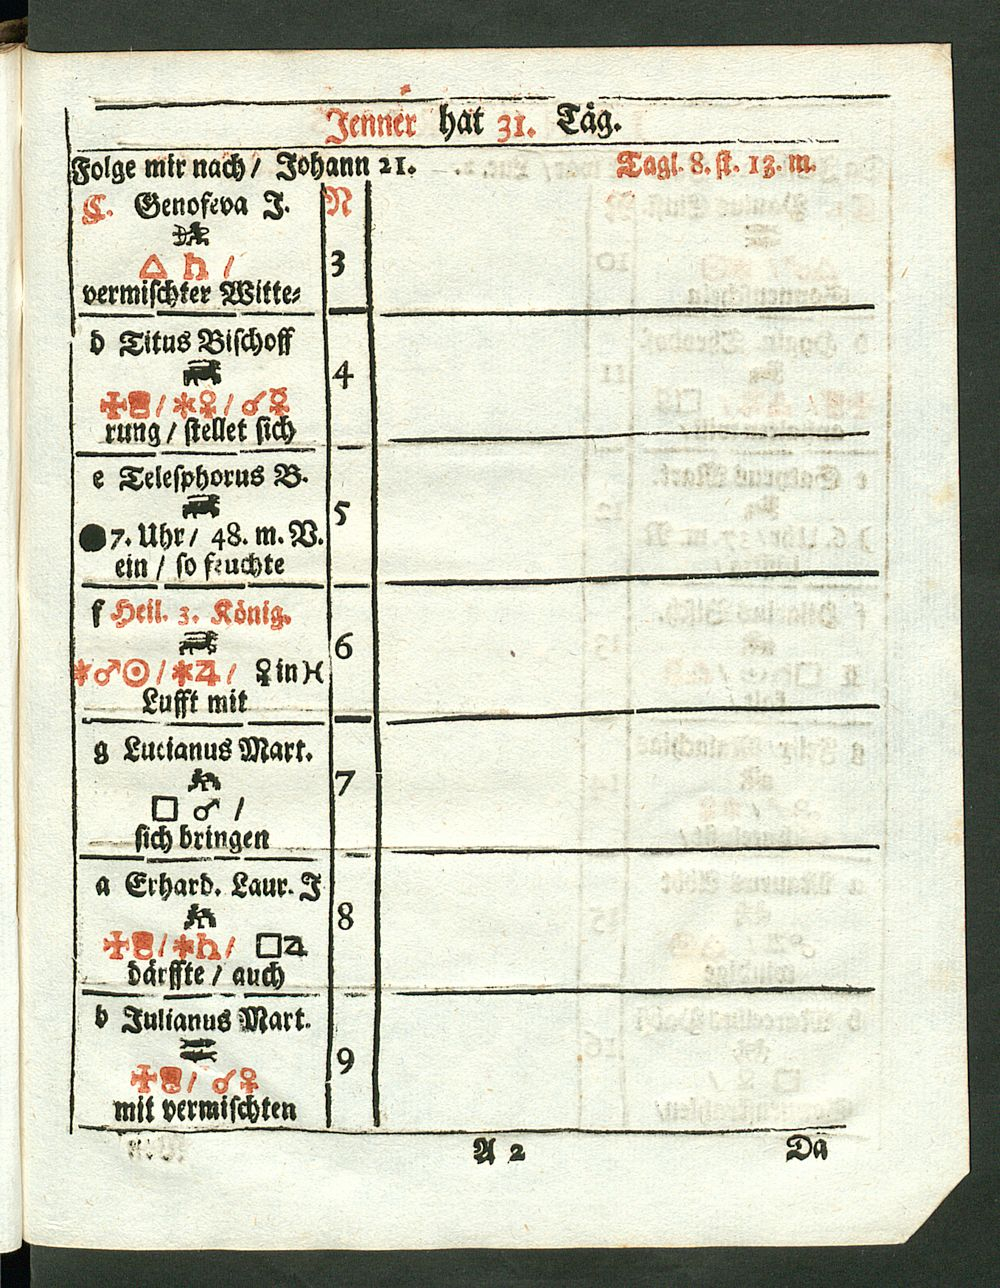 Jenner hat 31. Täg.
Folge mir nach / Johann 21. Tagl. 8. ſt. 13. m.
C. Genofeva J. N
△ ♄ / 3
vermiſchter Witte⸗
d Titus Biſchoff
4
/ ✶♀ / ☌☿
rung / ſtellet ſich
e Teleſphorus B.
5
●7. Uhr / 48. m. V.
ein / ſo feuchte
f Heil. 3. König.
6
✶♂☉ / ✶♃ / ♀ in ♓
Lufft mit
g Lucianus Mart.
7
□ ♂ /
ſich bringen
a Erhard. Laur. J
8
/ ✶♄ / □♃
därffte / auch
b Julianus Mart.
9
/ ☌♀
mit vermiſchten
A 2 Da